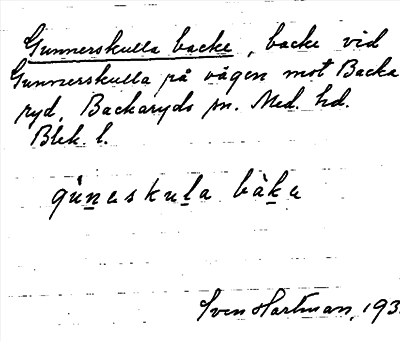 Gunnerskulla backe, backe vid
Gunnerskulla på vägen mot Backa
ryd, Backaryds sn. Med. hd.
Blek. l.
gùneskula bàke
Sven Hartman, 193